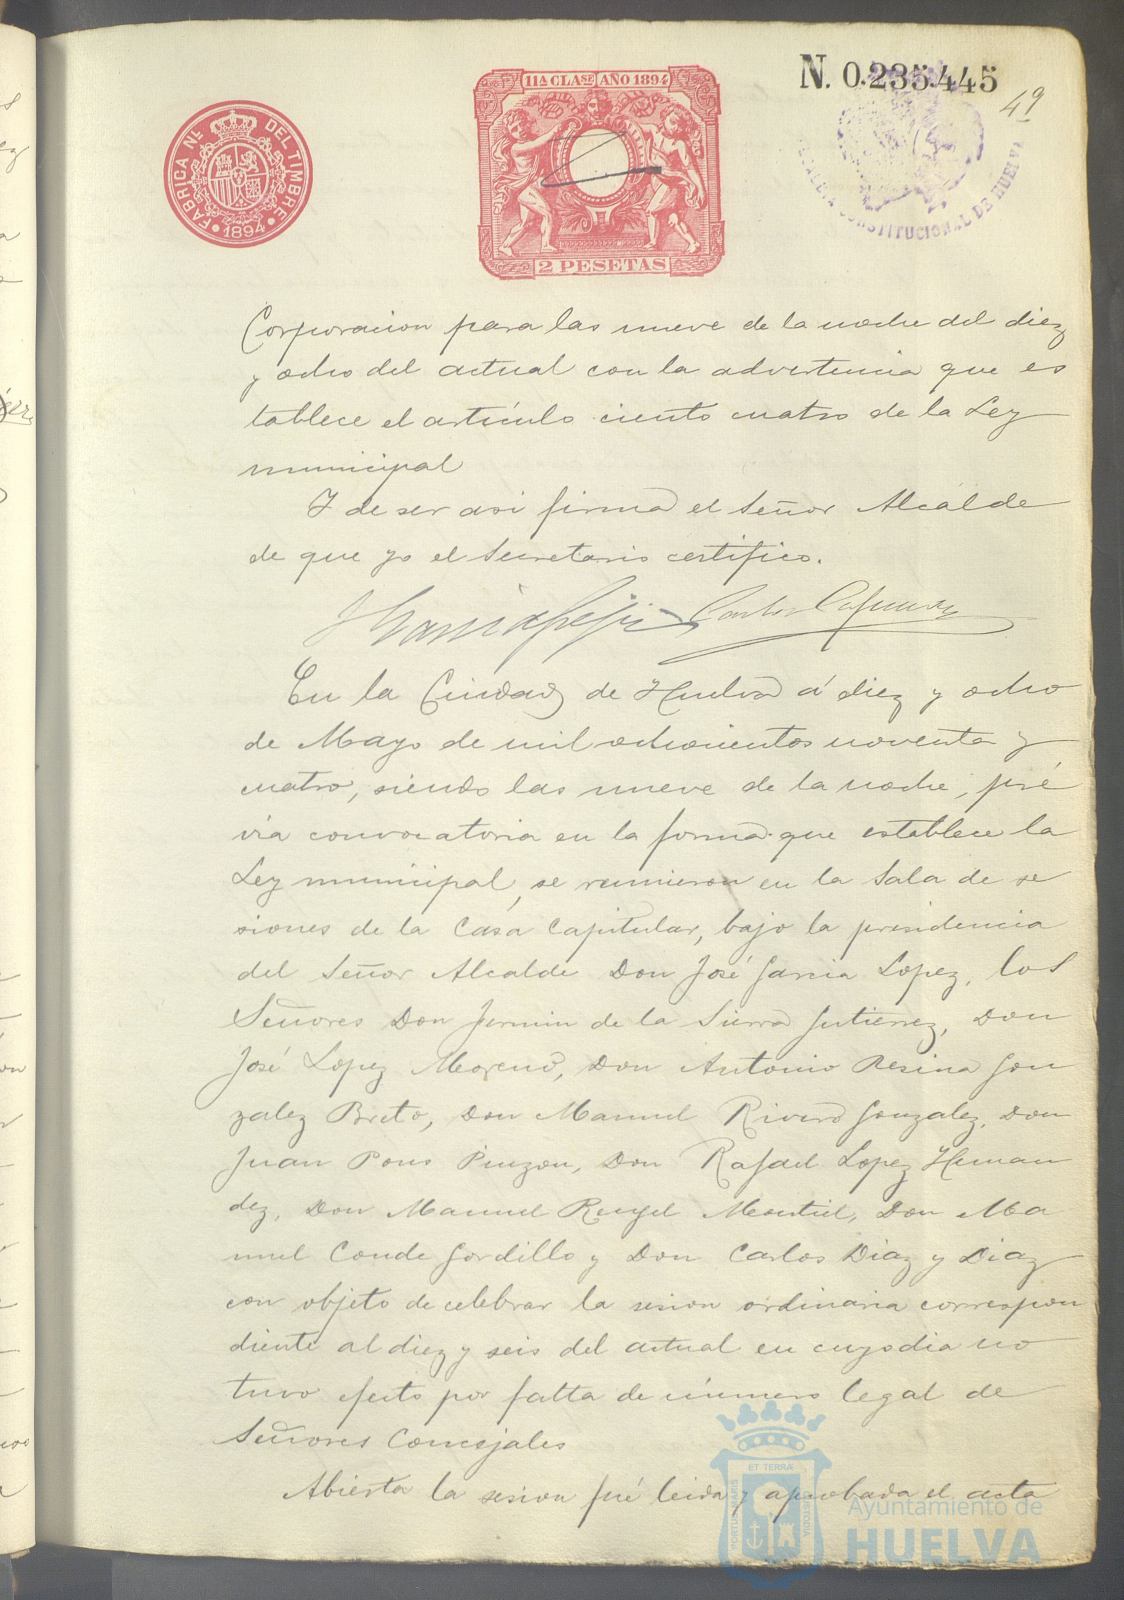 11A CLASE AÑO 1894
N. 0.235.445
49
FABRICA NL. DEL TIMBRE
1894
2 PESETAS
ALCALDIA CONSTITUCIONAL DE HUELVA
Corporacion para las nueve de la noche del diez
y ocho del actual con la advertencia que es
tablece el artículo ciento cuatro de la Ley
municipal
Y de ser asi firma el Señor Alcalde
de que yo el Secretario certifico.
En la Ciudad de Huelva á diez y ocho
de Mayo de mil ochocientos noventa y
cuatro, siendo las nueve de la noche, pré
via convocatoria en la forma que establece la
Ley municipal, se reunieron en la Sala de se
siones de la Casa Capitular, bajo la presidencia
del Señor Alcalde Don José Garcia Lopez, los
Señores Don Fermin de la Sierra Gutierrez, Don
José Lopez Moreno, Don Antonio Resina Gon
zalez Brito, Don Manuel Rivero Gonzalez, Don
Juan Pons Pinzon, Don Rafael Lopez Hernan
dez, Don Manuel Rengel Montiel, Don Ma
nuel Conde Gordillo y Don Carlos Diaz y Diaz
con objeto de celebrar la sesion ordinaria correspon
diente al diez y seis del actual en cuyo dia no
tuvo efecto por falta de número legal de
Señores Concejales
Abierta la sesion fué leida y aprobada el acta
ET TERRÆ
PORTUS MARIS
CUSTODIA
Ayuntamiento de
HUELVA